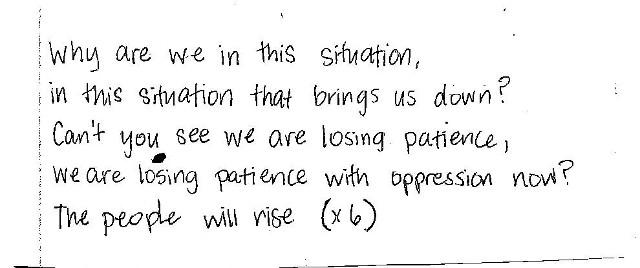 Why are we in this situation,
in this situation that brings us down?
Can't you see we are losing patience,
we are losing patience with oppression now?
The people will rise (x6)